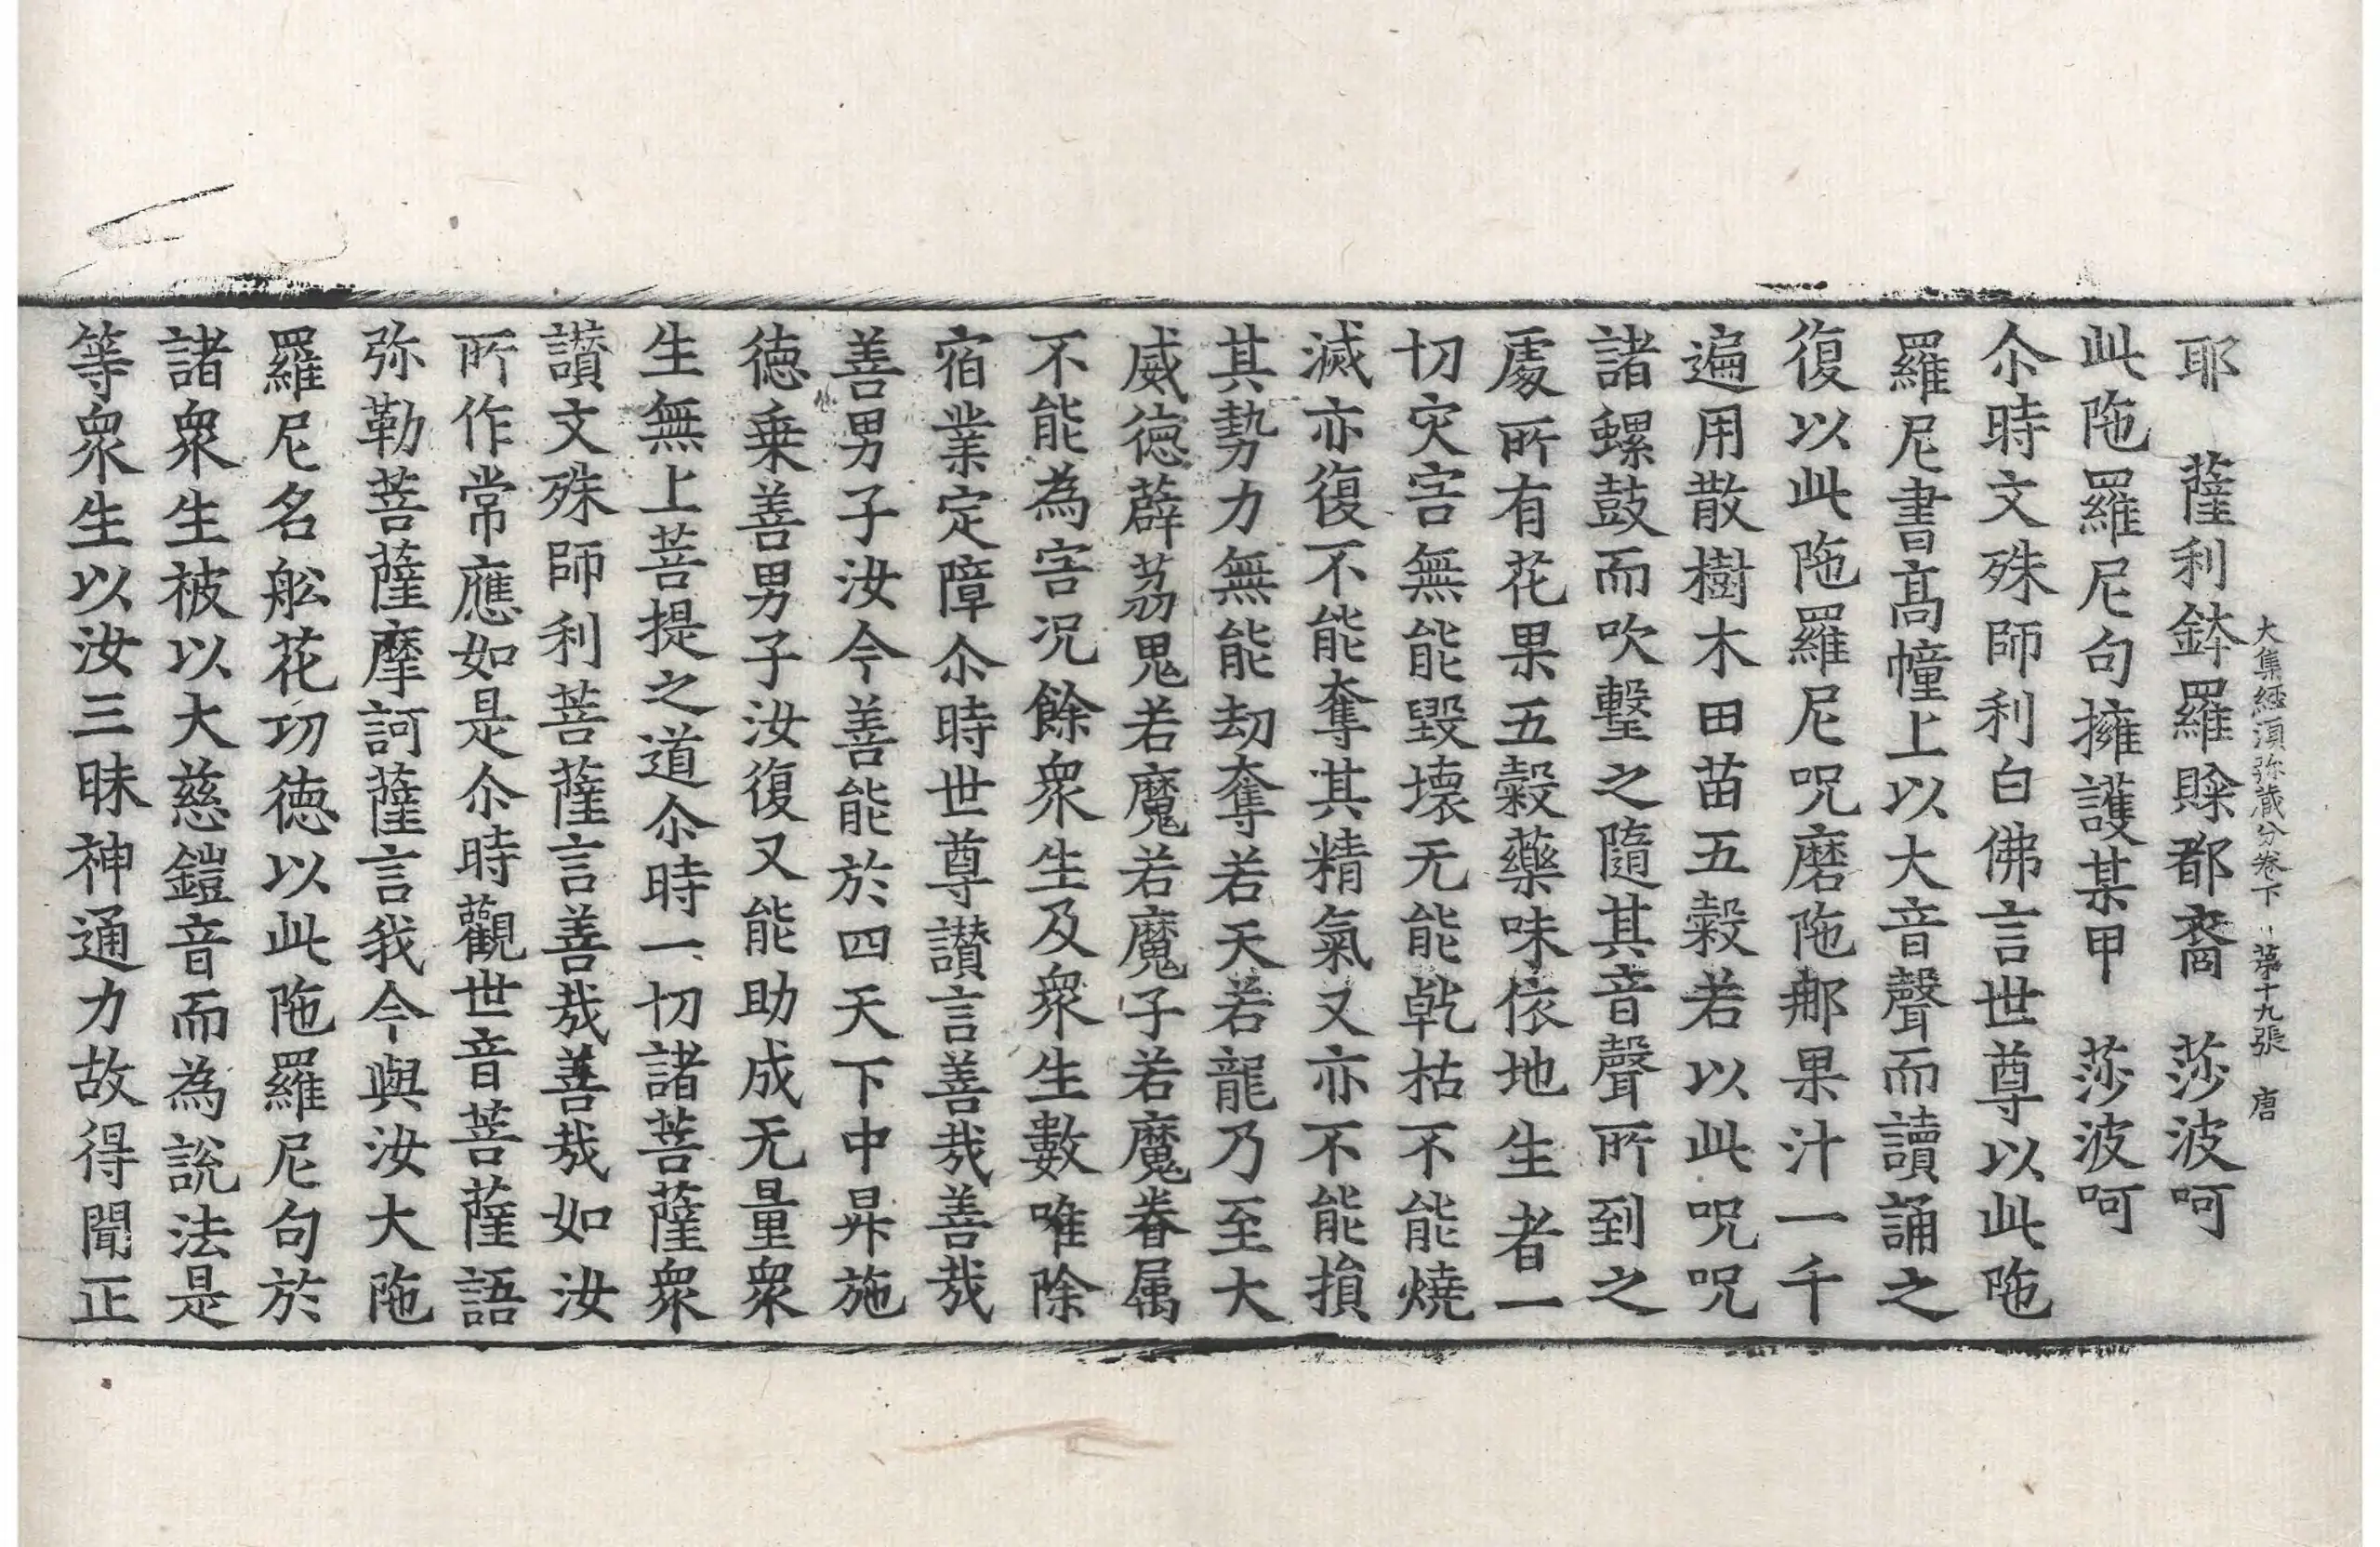 大集經湏弥藏分卷下 第十九張 唐
耶 薩利鉢羅賖都裔 莎波呵
此陁羅尼句擁護某甲 莎波呵
尒時文殊師利白佛言世尊以此陁
羅尼書髙幢上以大音聲而讀誦之
復以此陁羅尼呪磨陁那果汁一千
遍用散樹木田苗五穀若以此呪呪
諸螺鼓而吹擊之隨其音聲所到之
處所有花果五穀藥味依地生者一
切灾害無能毀壞无能乹枯不能燒
滅亦復不能奪其精氣又亦不能損
其勢力無能劫奪若天若龍乃至大
威德薜荔鬼若魔若魔子若魔眷属
不能為害况餘衆生及衆生數唯除
宿業定障尒時世尊讃言善哉善哉
善男子汝今善能於四天下中昇施
德乗善男子汝復又能助成无量衆
生無上菩提之道尒時一切諸菩薩衆
讃文殊師利菩薩言善哉善哉如汝
所作常應如是尒時觀世音菩薩語
弥勒菩薩摩訶薩言我今與汝大陁
羅尼名舩花功德以此陁羅尼句於
諸衆生被以大慈鎧音而為說法是
等衆生以汝三昧神通力故得聞正